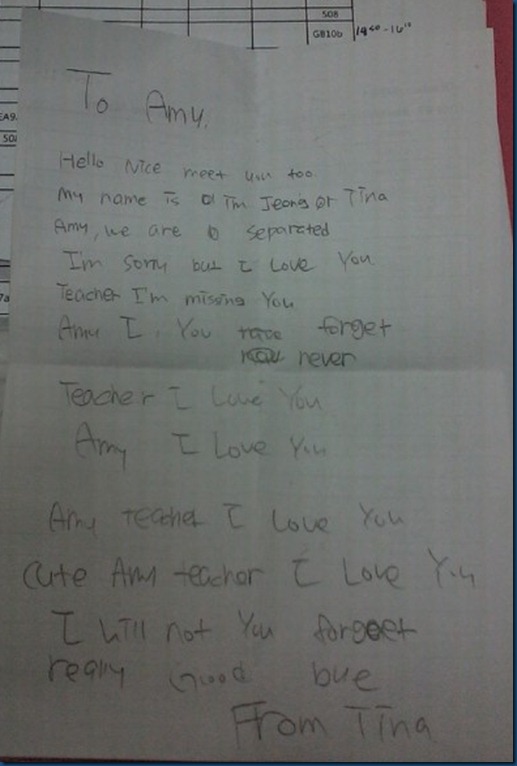 508
GB10b 1940-16"
EA9
To Amy.
Hello Nice meet you too
My name is a im Jeong or Tina
Amy, we are separated
I'm sorry but I Love You
Teacher I'm missing You
Amy I. You forget
never
Teacher I Love You
Amy I Love You
Amy teacher I Love You
Cute Amy teacher I Love You
I will not You forgoet
really Good bye
From Tina